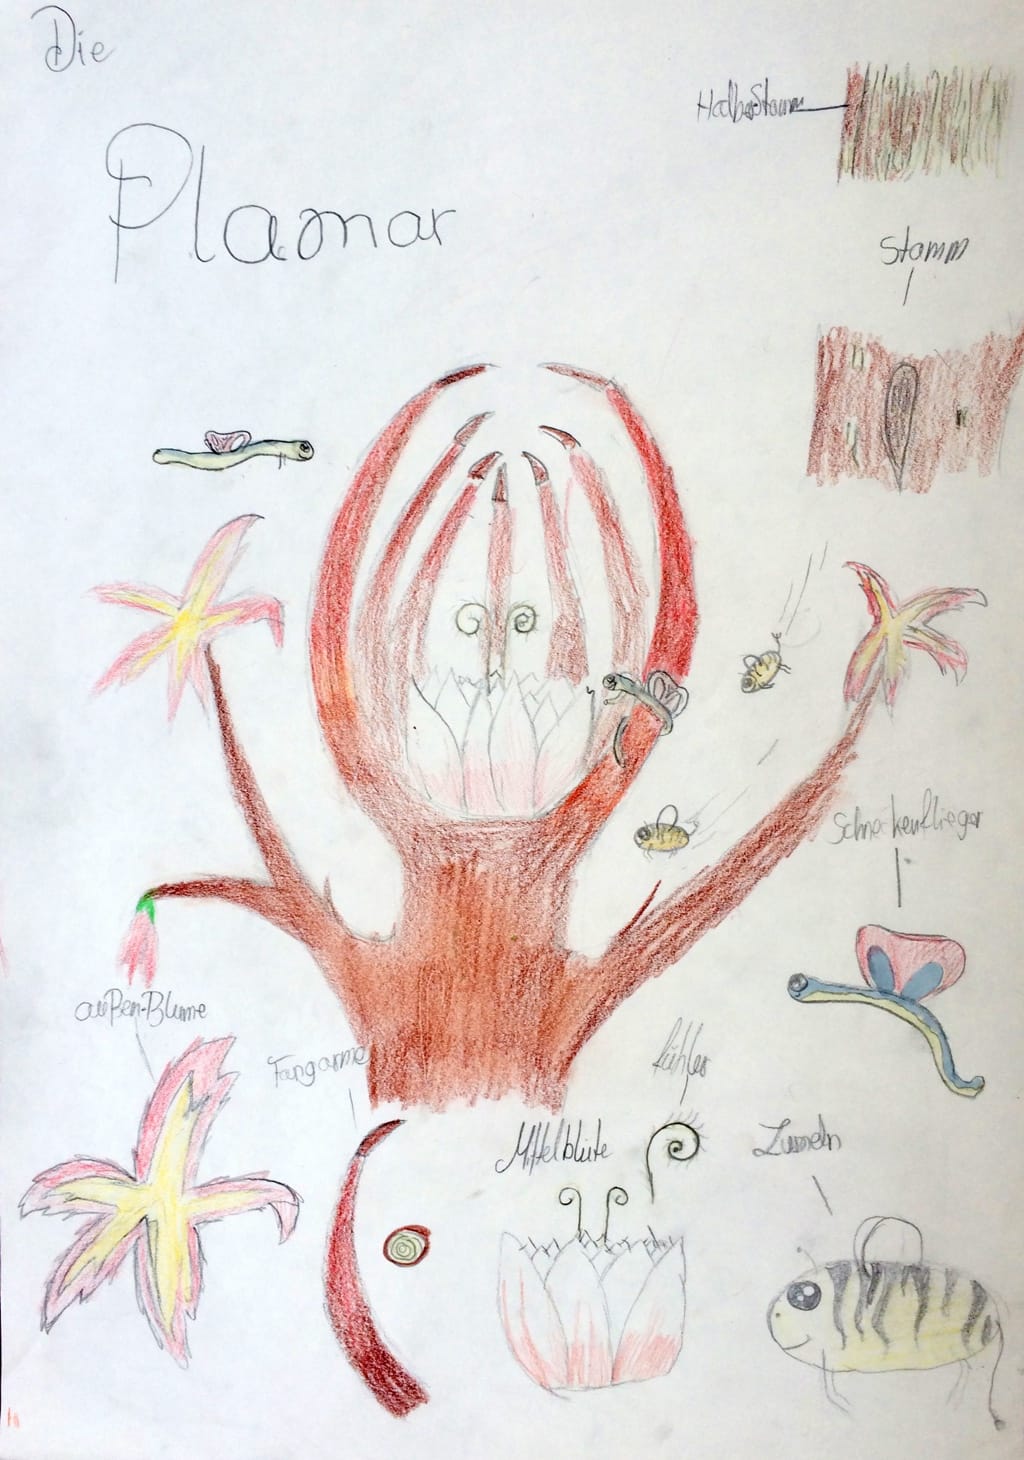 Die
Plamar
Halber Stamm
Stamm
Schneckenflieger
außen-Blume
Fangarme
Fühler
Mittelblüte
Lumeln